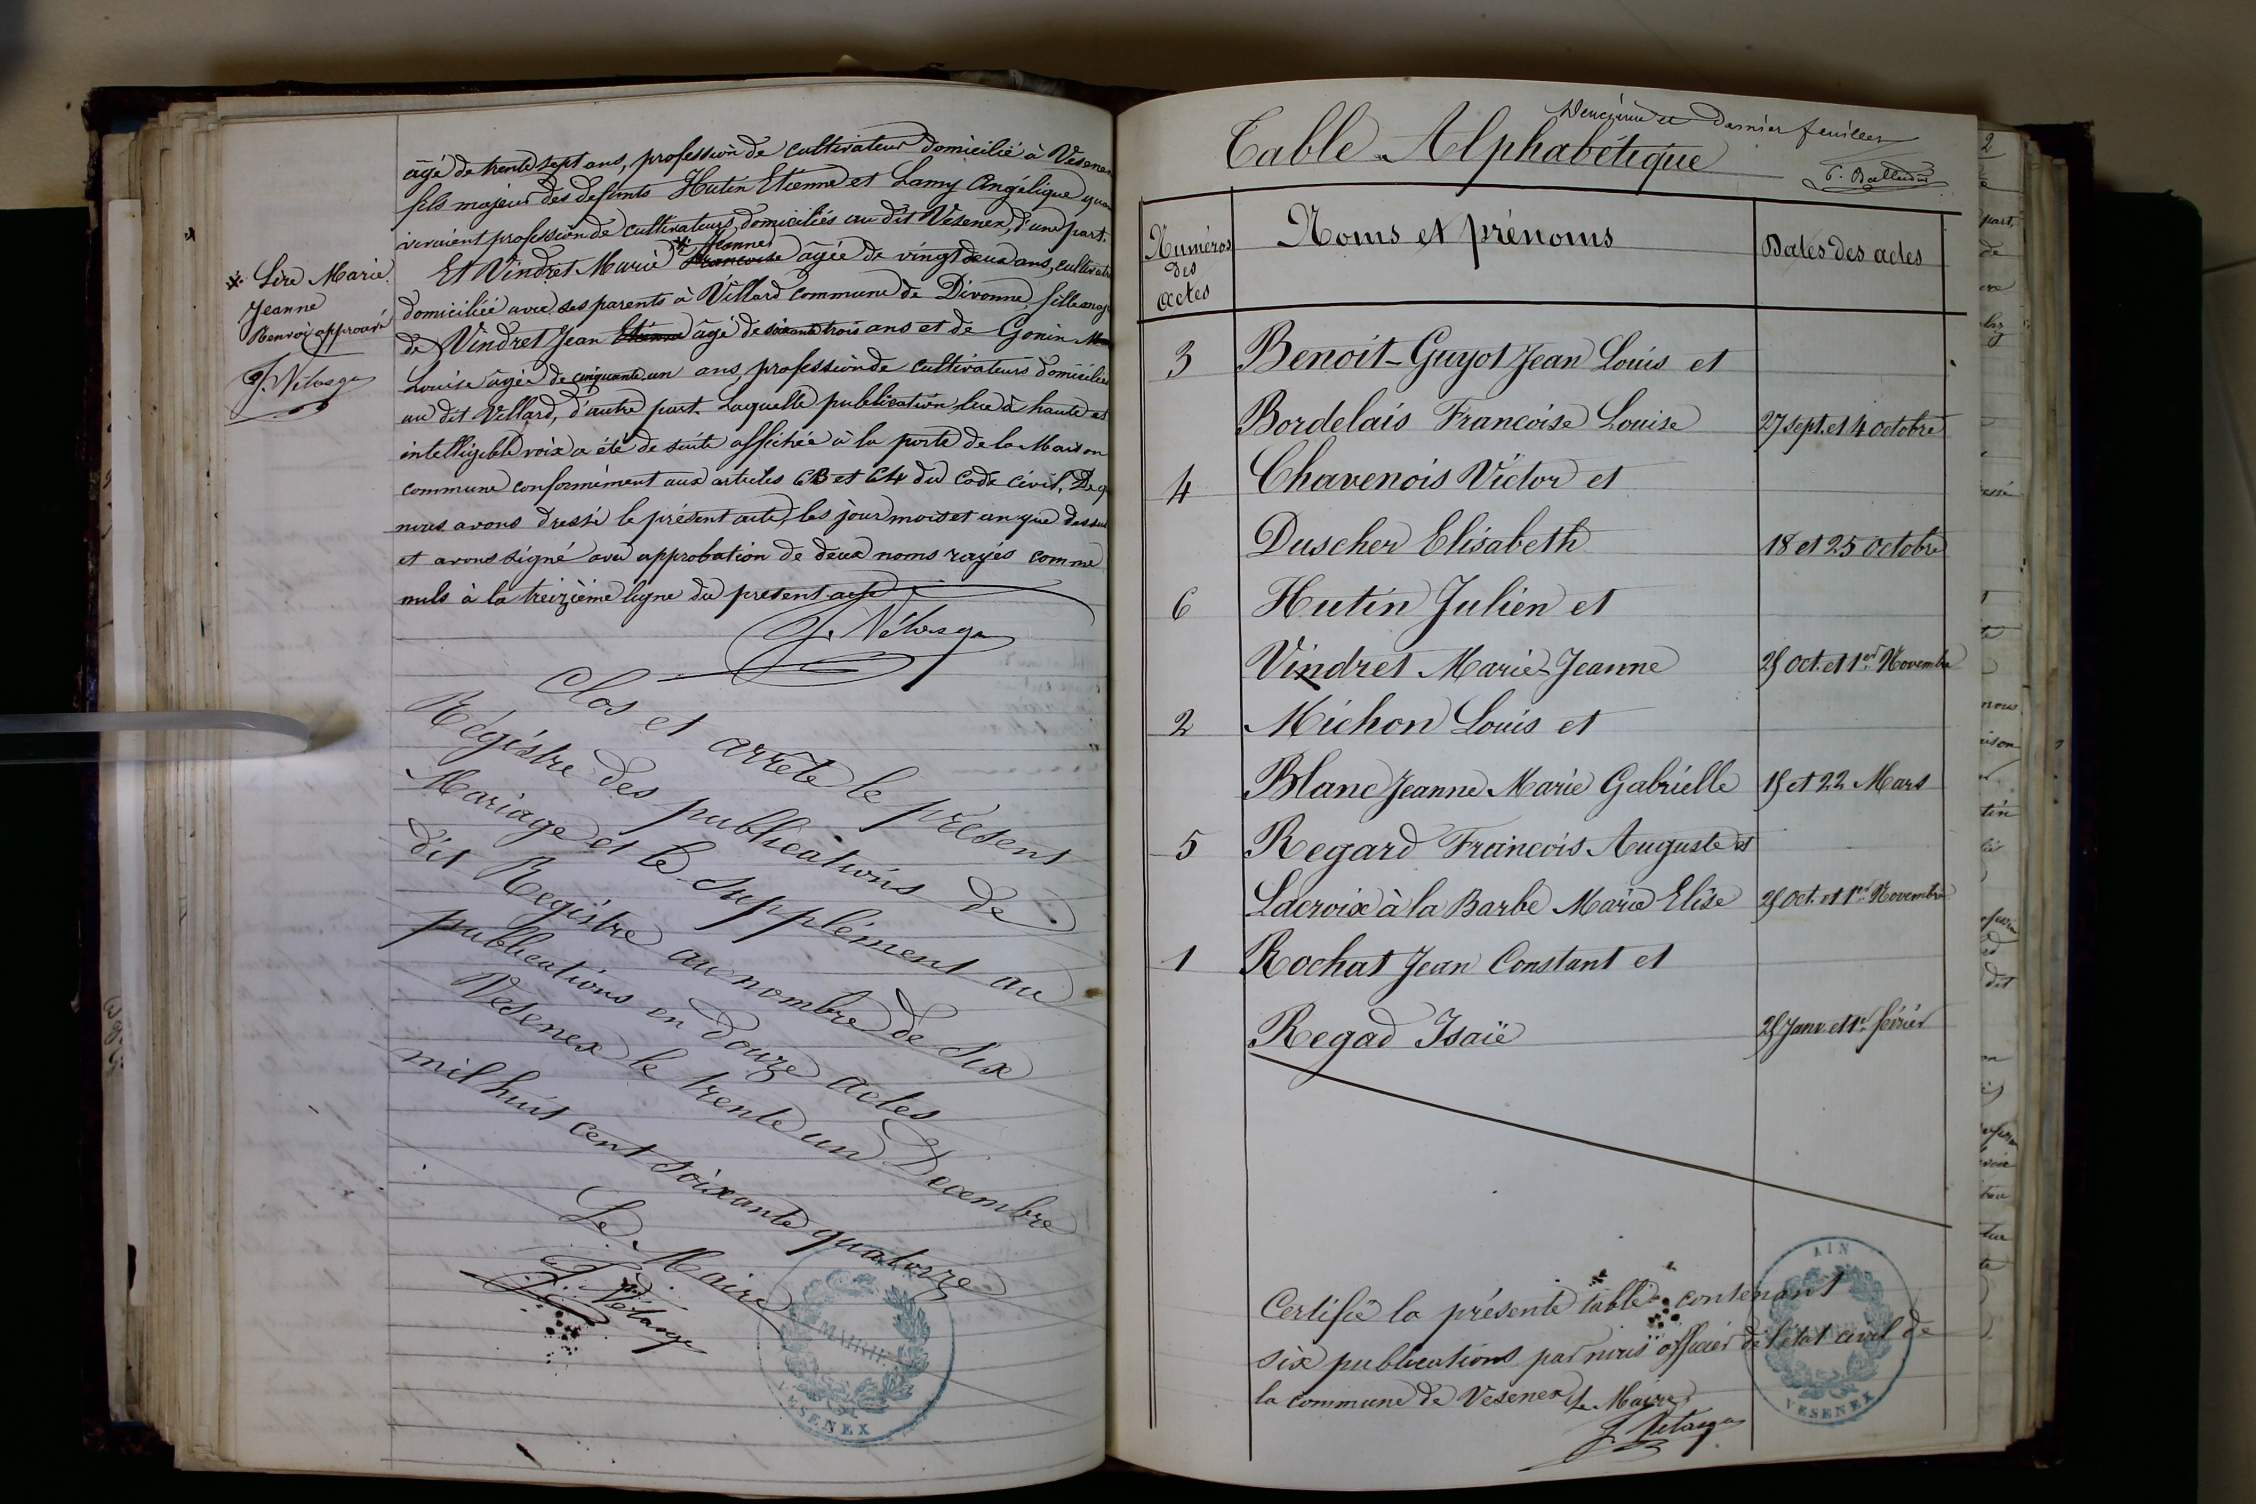 âgé de trente sept ans, profession de cultivateur domicilié à Vesenex
fils majeur des defunts Hutin Etienne et Lamy Angélique quan
vivaient profession de cultivateurs domiciliés au dit Vesenex, d'une part.
Et Vindret Marie * Jeanne Francoise âgée de vingt deux ans, cultivatr
domiciliée avec ses parents à Villard commune de Divonne, fille maj
de Vindret Jean Etienne âgé de soixante trois ans et de Gonin
Louise âgée de cinquante un ans, profession de cultivateurs domiciliés
au dit Villard, d'autre part. Laquelle publication lue à haute et
intelligible voix a été de suite affichée à la porte de la Maison
commune conformément aux articles 63 et 64 du Code Civil, De q
nous avons dressé le présent acte, les jour mois et an que dessus
et avons signé avec approbation de deux noms rayés comme
nuls à la treizième ligne du présent acte
* Lire Marie
Jeanne
Renvoi approuvé
Clos et arrêté le présent
Régistre des publications de
Mariage et le Supplément au
dit Registre au nombre de six
publications en douze actes
Vesenex le trente un Décembre
mil huit cent soixante quatorze
Le Maire
MAIRIE
VESENEX
Deuxième et dernier feuillet
Table Alphabétique
Numéros des actes
Noms et prénoms
Dates des actes
3 Benoit-Guyot Jean Louis et
Bordelais Francoise Louise 27 sept. et 4 octobre
4 Chavenois Victor et
Duscher Elisabeth 18 et 25 octobre
6 Hutin Julien et
Vindret Marie-Jeanne 25 Oct. et 1er Novembre
2 Michon Louis et
Blanc Jeanne Marie Gabrielle 15 et 22 Mars
5 Regard Francois Auguste et
Lacroix à la Barbe Marie Elise 25 Oct. et 1er Novembre
1 Rochat Jean Constant et
Regad Isaïe 25 Janv. et 1er février
Certifié la présente table contenant
six publications par nous officier de l'état civil de
la commune de Vesenex Le Maire
AIN
VESENEX